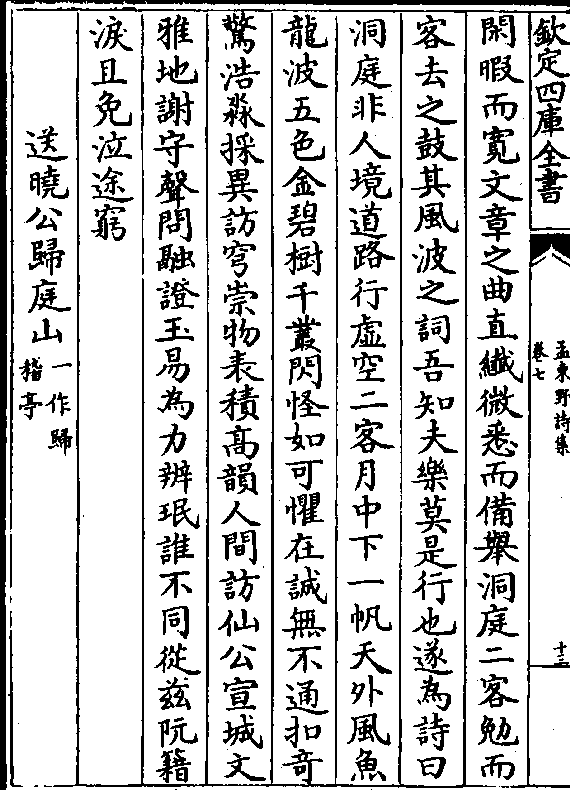 欽定四庫全書
孟東野詩集
卷七
十三
閑暇而寛文章之曲直纎微悉而備舉洞庭二客勉而
客去之鼓其風波之詞吾知夫樂莫是行也遂為詩曰
洞庭非人境道路行虚空二客月中下一帆天外風魚
龍波五色金碧樹千叢閃怪如可懼在誠無不通扣奇
驚浩淼採異訪穹崇物表積髙韻人間訪仙公宣城文
雅地謝守聲問融證玉易為力辨珉誰不同從兹阮籍
淚且免泣途窮
送曉公歸庭山
一作歸
稽亭